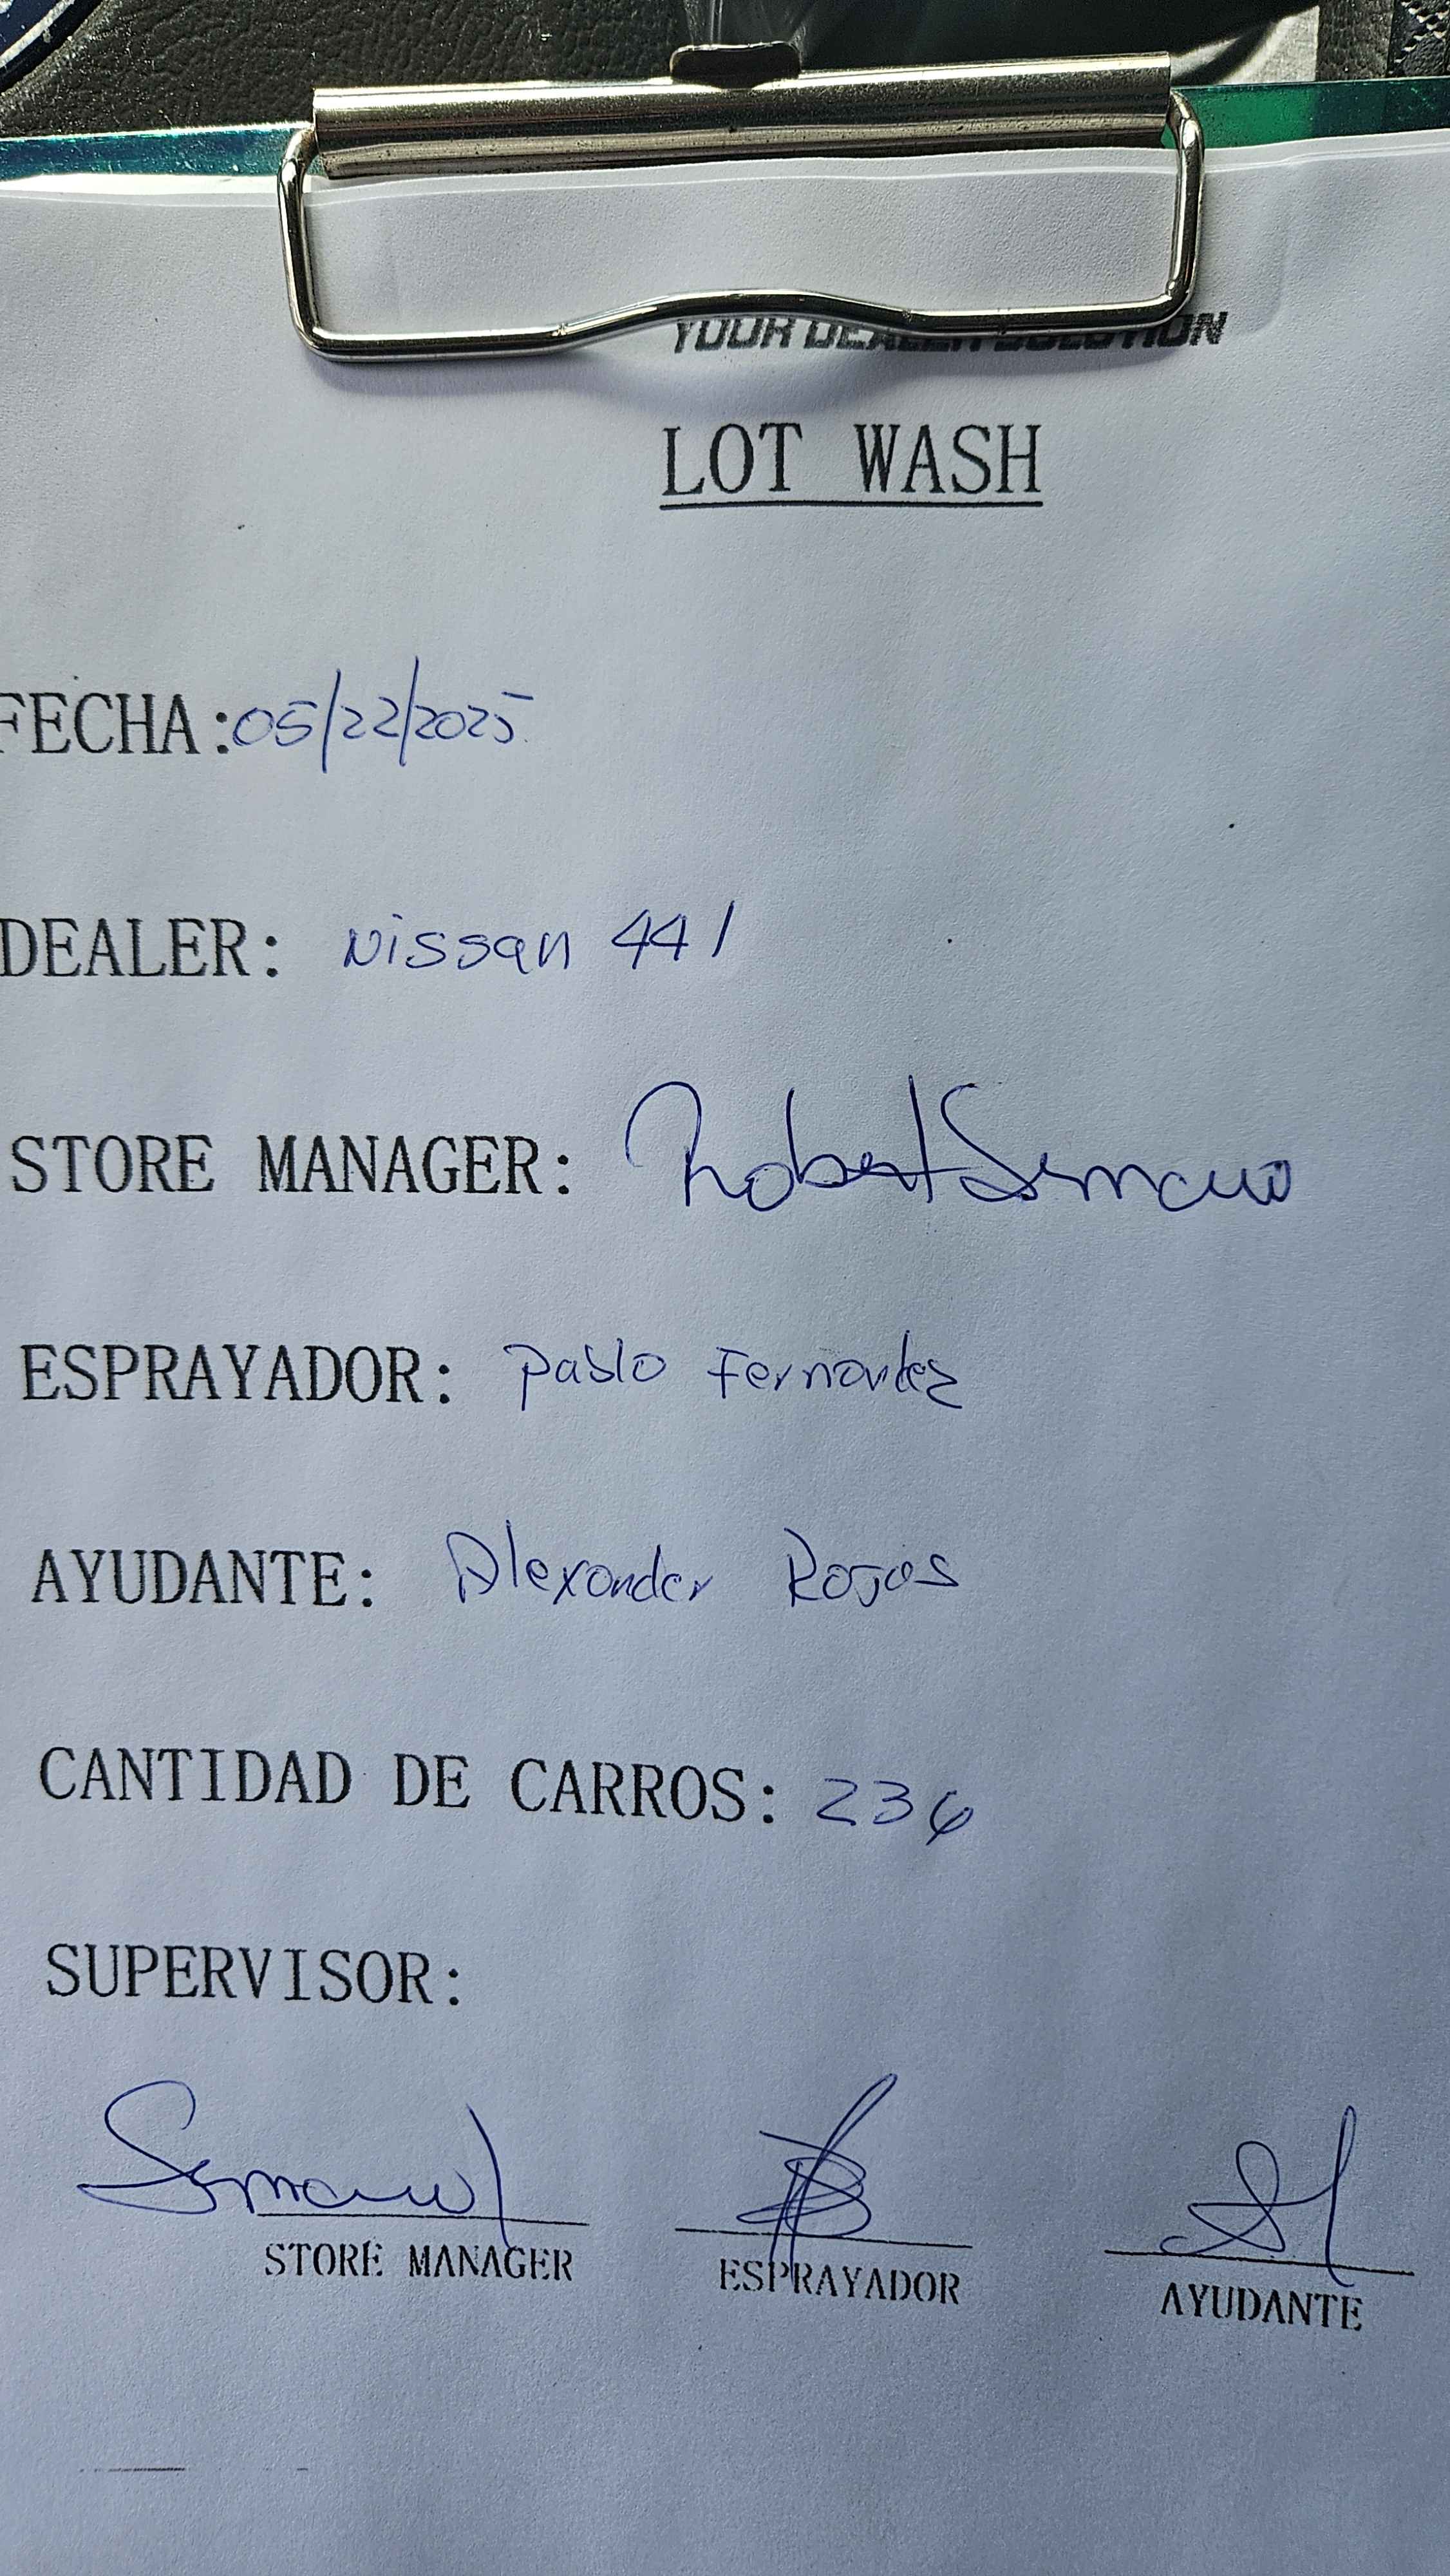 YOUR DEALER SOLUTION
LOT WASH
FECHA: 05/22/2025
DEALER: Nissan 441
STORE MANAGER: Robert
ESPRAYADOR: Pablo Fernandez
AYUDANTE: Alexander Rojas
CANTIDAD DE CARROS: 236
SUPERVISOR:
STORE MANAGER ESPRAYADOR AYUDANTE